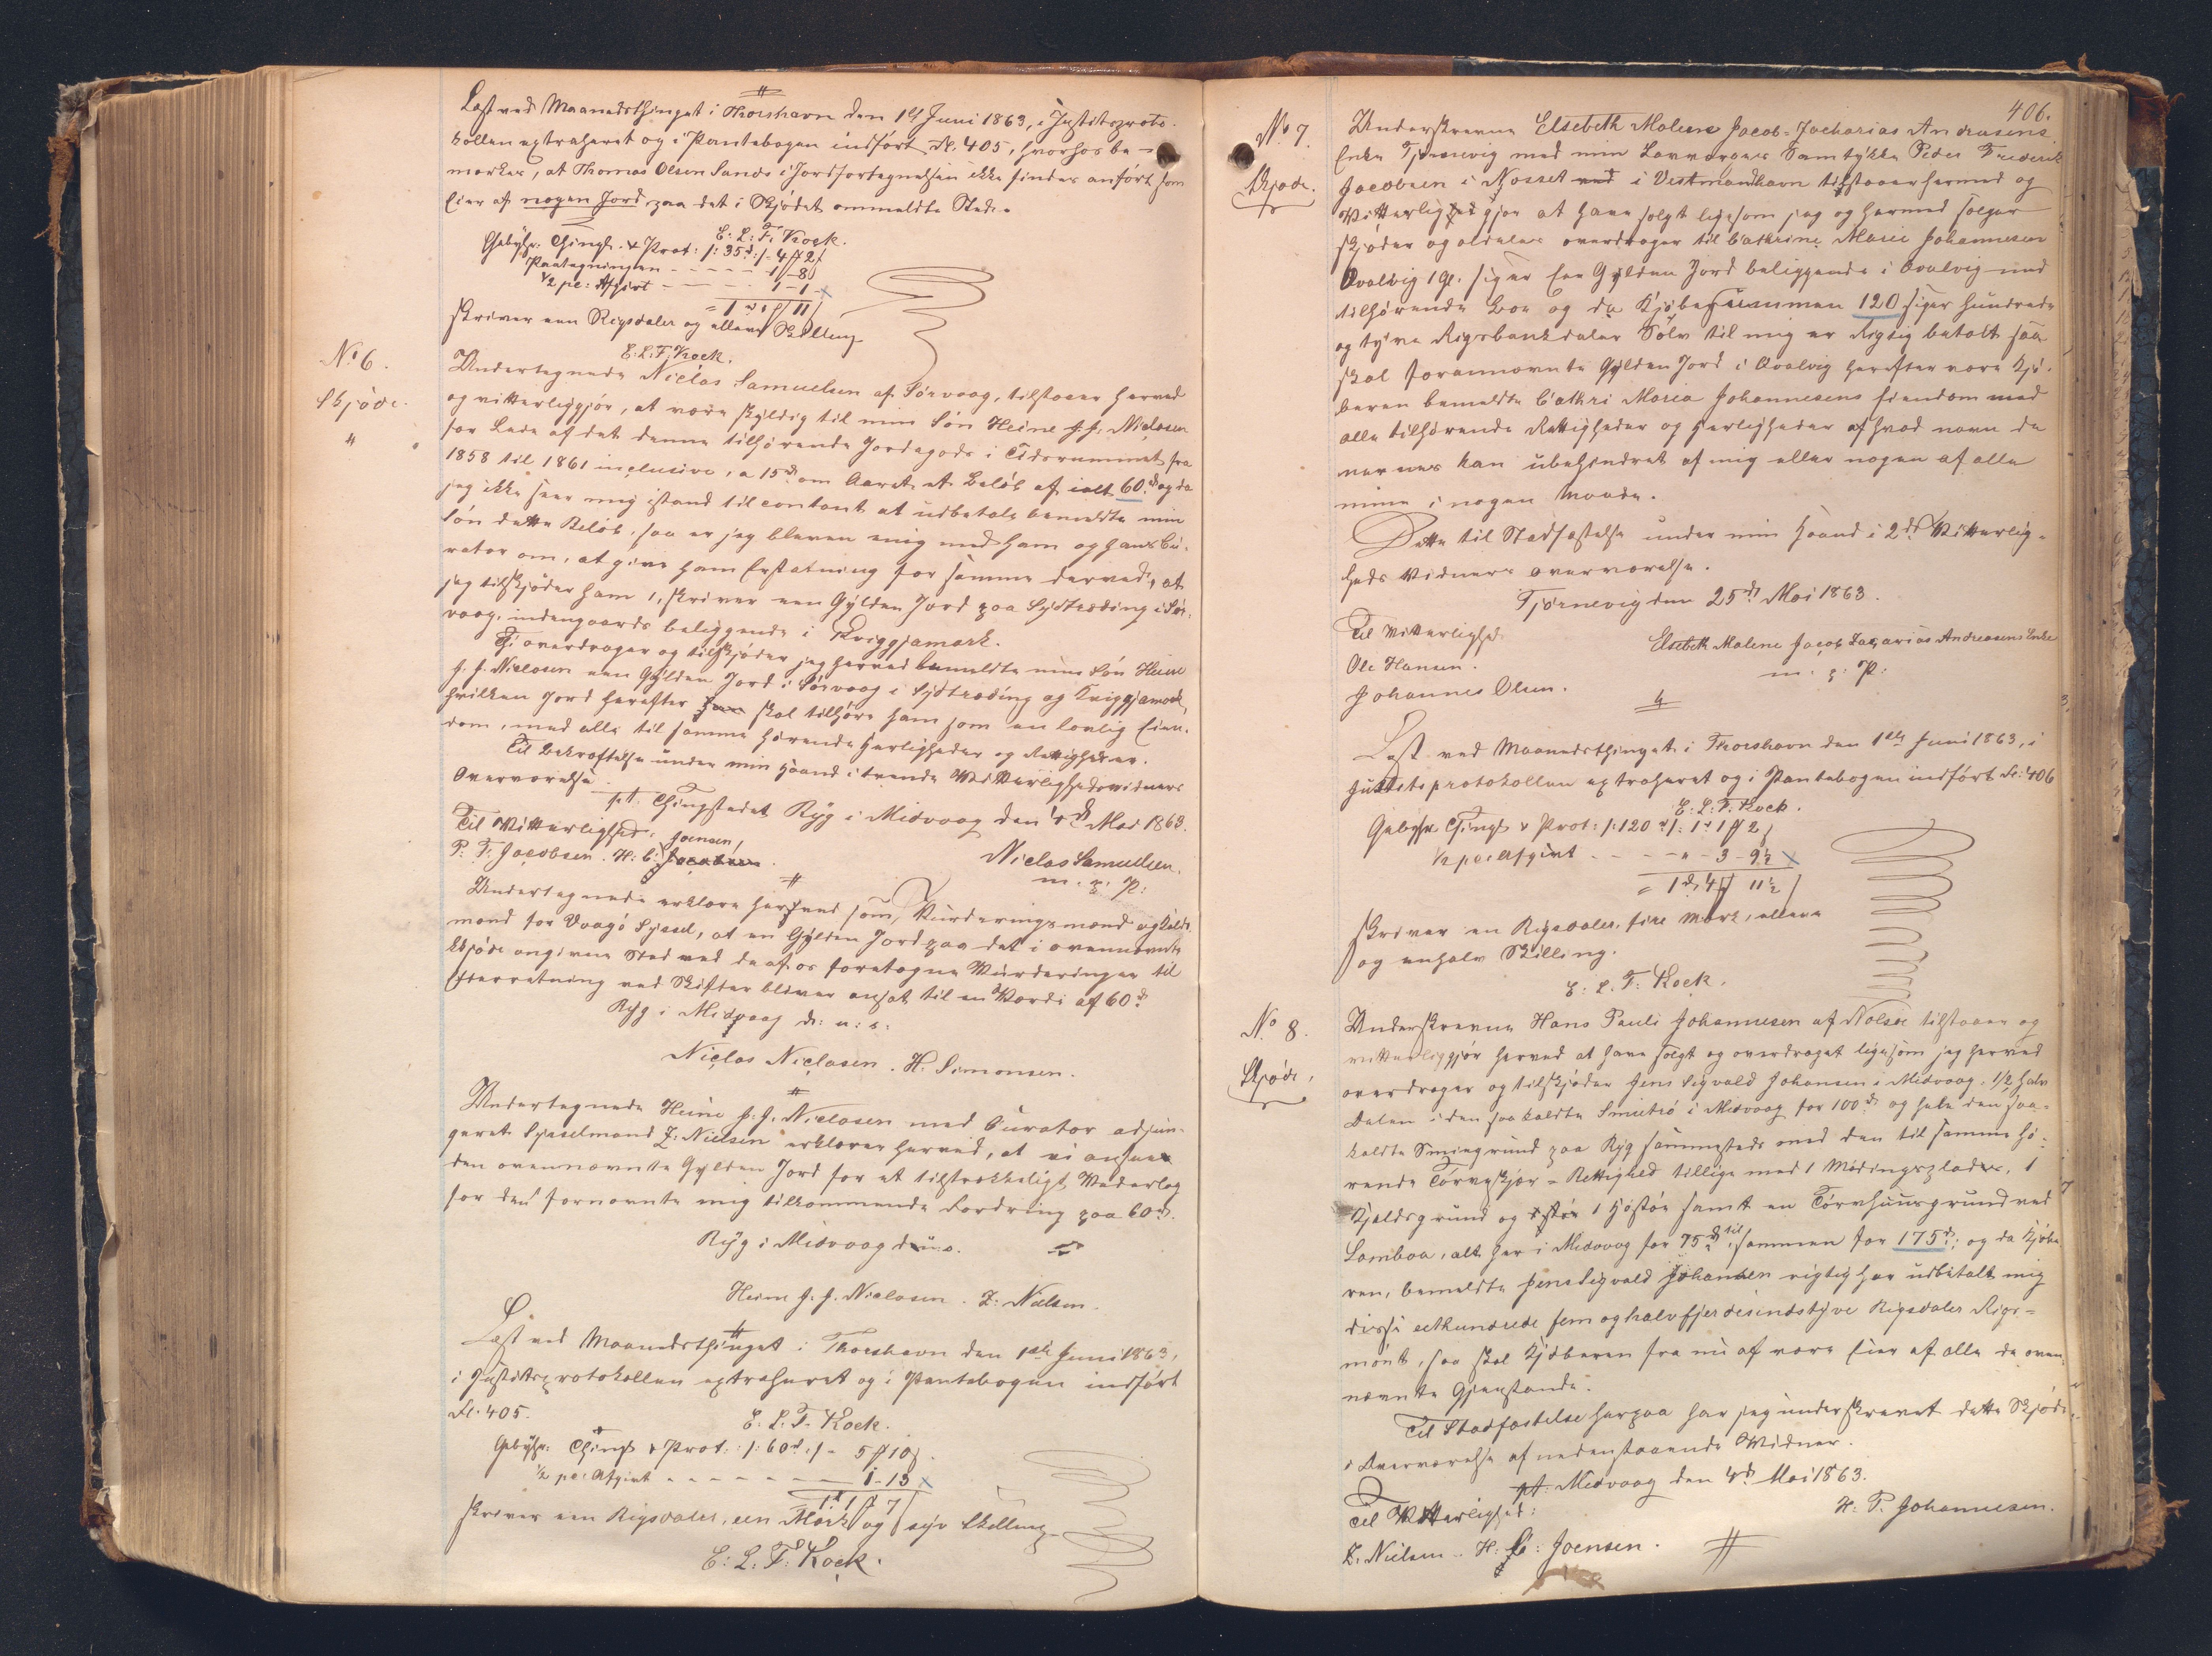 Læst ved Maanedsthinget i Thorshavn den 1ste Juni 1863, i Justitsproto-
kollen extraheret og i Pantebogen indført Fl. 405, hvorhos be-
mærkes, at Thomas Olsen Sands i Jordfortegnelsen ikke findes anført som
Eier af nogen Jord paa det i Skjødet ommeldte Sted.
E: L: F: Kock.
Gebyhr: Thingl. & Prot: /: 35d :/ - 4 ₰ 2 ẞ
Paategningen - - - - - 1 - 8
½ pc: Afgivt - - - - 1 - 1 -
= 1d " ₰ 11 ẞ
skriver een Rigsdaler og elleve Skilling
E: L: F: Kock.
No 6.
Skjøde.
"
Undertegnede Niclas Samuelsen af Sørvaag, tilstaaer herved
og vitterliggjør, at være skyldig til min Søn Heine J. J. Niclasen
for Leie af det denne tilhørende Jordegods i Tidsrummet fra
1858 til 1861 inclusive, a 15d om Aaret et Beløb af ialt 60d og da
jeg ikke seer mig istand til contant at udbetale bemeldte min
Søn dette Beløb, saa er jeg bleven enig med ham og hans Cu-
rator om, at give ham Erstatning for samme derved, at
jeg tilskjøder ham 1, skriver een Gylden Jord paa Sydtræding i Sør-
vaag, indengaards beliggende i Kviggjamark.
Thi overdrager og tilskjøder jeg herved bemeldte min Søn Heine
J. J. Niclasen een Gylden Jord i Sørvaag i Sydtræding og Kviggjamark,
hvilken Jord herefter skal tilhøre ham som en lovlig Eien-
dom, med alle til samme hørende Herligheder og Rettigheder.
Til Bekræftelse under min Haand i tvende Vitterlighedsvidners
Overværelse
pt. Thingstedet Ryg i Midvaag den 4d Mai 1863.
Til Vitterlighed: Joensen,
P. F. Jacobsen. H: C:
Niclas Samuelsen.
m. p. P:
Undertegnede erklære herved som Vurderingsmænd og
mænd for Vaagø Syssel, at en Gylden Jord paa det i ovennævnte
Skjøde angivne Sted ved de af os foretagne Vurderinger til
Efterretning ved Skifter bliver ansat til en Værdi af 60d
Ryg i Midvaag d: u: s:
Niclas Niclasen. H. Simonsen.
Undertegnede Heine J. J. Niclasen med Curator adjun-
geret Sysselmand Z: Nielsen erklærer herved, at vi anseer
den ovennævnte Gylden Jord for et tilstrækkeligt Vederlag
for den fornævnte mig tilkommende Fordring paa 60d.
Ryg i Midvaag d: u: s.
Heine J. J. Niclasen. Z: Nielsen.
Læst ved Maanedsthinget i Thorshavn den 1ste Juni 1863,
i Justitsprotokollen extraheret og i Pantebogen indført
Fl. 405.
E. L. F. Kock.
Gebyhr: Thingl & Prot: /: 60d :/ - 5 ₰ 10 ẞ
½ pc: Afgivt - - - - - - 1 - 13
= 1d 1 ₰ 7 ẞ
skriver een Rigsdaler, een Mark og syv Skilling
E: L: F: Kock.
406.
No 7.
Skjøde.
Underskrevne Elsebeth Malene Jacob-Zacharias Andreasens
Enke Tjørnevig med min Lavværges Samtykke Peder Frederik
Jacobsen i Nosset ved i Vestmanhavn tilstaaer herved og
vitterlig gjør at have solgt ligesom jeg og herved sælger
skjøder og aldeles overdrager til Cathrine Marie Johannesen
Qvalvig 1 gl. siger Een Gylden Jord beliggende i Qvalvig med
tilhørende Boe og da Kjøbesummen 120 siger hundrede
og tyve Rigsbankdaler Sølv til mig er Rigtig betalt saa
skal forannævnte Gylden Jord i Qvalvig herefter være Kjø-
beren bemeldte Cathri Maria Johannesens Eiendom med
alle tilhørende Rettigheder og Herligheder af hvad navn de
nævnes kan ubehindret af mig eller nogen af alle
mine i nogen Maade.
Dette til Stadfæstelse under min Haand i 2de Vitterlig-
heds Vidners overværelse.
Tjørnevig den 25d Mai 1863.
Til Vitterlighed
Ole Hansen.
Johannes Olsen.
Elsebeth Malene Jacob Zacarias Andreasens Enke
m. p. P:
Læst ved Maanedsthinget i Thorshavn den 1ste Juni 1863, i
Justitsprotokollen extraheret og i Pantebogen indført Fl: 406
E: L: F: Kock.
Gebyhr Thingl & Prot: /: 120d /: 1d 1 ₰ 2 ẞ
½ pc: Afgivt - - - " - 3 - 9½
= 1d 4 ₰ 11½ ẞ
skriver en Rigsdaler, fire Mark, elleve
og enhalv Skilling.
E. L. F: Kock.
No 8.
Skjøde,
Underskrevne Hans Pauli Johannesen af Nolsøe tilstaaer og
vitterliggjør herved at have solgt og overdraget ligesom jeg herved
overdrager og tilskjøder Jens Sigvald Johansen i Midvaag, 1/2 halv
Delen i den saa kaldte Smiutrø i Midvaag for 100d og hele den saa-
kaldte Smiugrund paa Ryg sammesteds med den til samme hø-
rende Tørveskjær-Rettighed tillige med 1 Mødingsplads, 1
Kjeldsgrund og 1 Hjøstøe samt en Tørvhuusgrund ved
Lamboa, alt her i Midvaag for 75d til sammen for 175d; og da Kjøbe
ren, bemeldte Jens Sigvald Johansen rigtig har udbetalt mig
disse eethundrede fem og halvfjerdesindstyve Rigsdaler Rigs-
mønt, saa skal Kjøberen fra nu af være Eier af alle de oven-
nævnte Gjenstande.
Til Stadfæstelse herpaa har jeg underskrevet dette Skjøde
i Overværelse af nedenstaaende Vidner.
pt. Midvaag den 4d Mai 1863.
Til Vitterlighed:
H. P. Johannesen.
Z. Nielsen. H: C: Joensen.